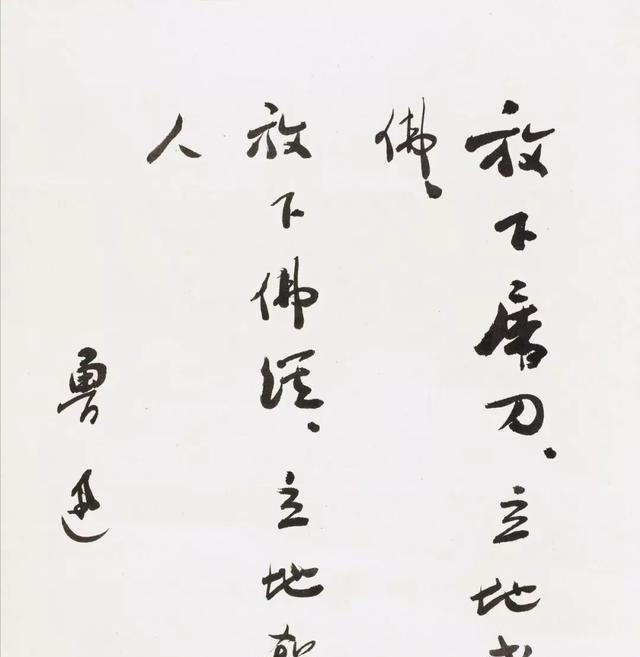 放下屠刀、立地
佛、
放下佛經、立地
人
魯迅